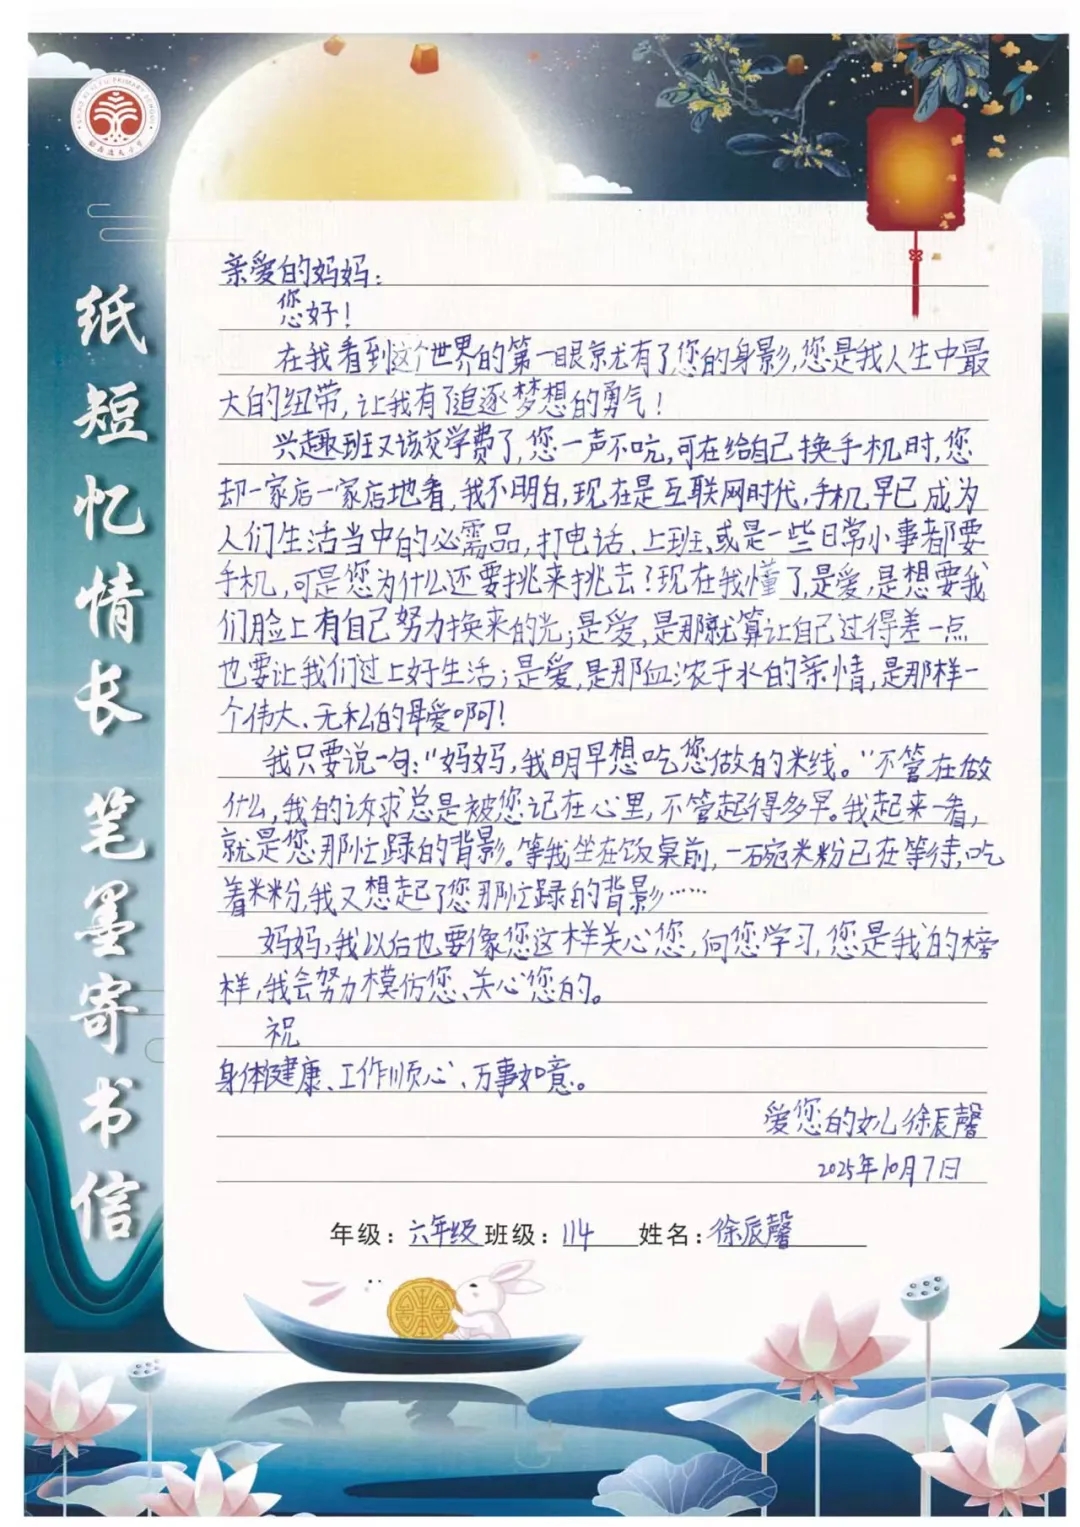 纸短忆情长 笔墨寄书信
亲爱的妈妈：
您好！
在我看到这个世界的第一眼京尤有了您的身影，您是我人生中最
大的纽带，让我有了追逐梦想的勇气！
兴趣班又该交学费了，您一声不吭，可在给自己换手机时，您
却一家店一家店地看，我不明白，现在是互联网时代，手机早已成为
人们生活当中的必需品，打电话、上班、或是一些日常小事者都要
手机，可是您为什么还要挑来挑去？现在我懂了，是爱，是想要我
们脸上有自己努力换来的光；是爱，是那就算让自己过得差一点
也要让我们过上好生活；是爱，是那血浓于水的亲情，是那样一
个伟大、无私的母爱啊！
我只要说一句：“妈妈，我明早想吃您做的米线。”不管在做
什么，我的诉求总是被您记在心里，不管起得多早。我起来一看，
就是您那忙碌的背影。等我坐在饭桌前，一碗米粉已在等待，吃
着米粉，我又想起了您那忙碌的背影……
妈妈，我以后也要像您这样关心您，向您学习，您是我的榜
样，我会努力模仿您、关心您的。
祝
身体健康、工作顺心、万事如意。
爱您的女儿徐辰馨
2025年10月7日
年级：六年级 班级：114 姓名：徐辰馨